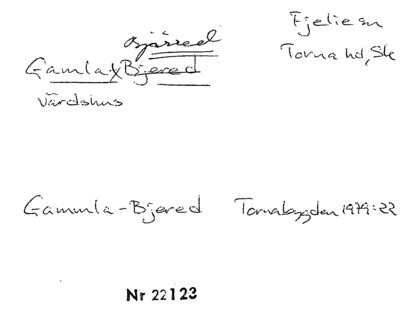 Bjärred
Fjelie sn
Gamla Bjered
Torna hd, Sk
värdshus
Gamla-Bjered Tornabygden 1979:22
Nr 22123